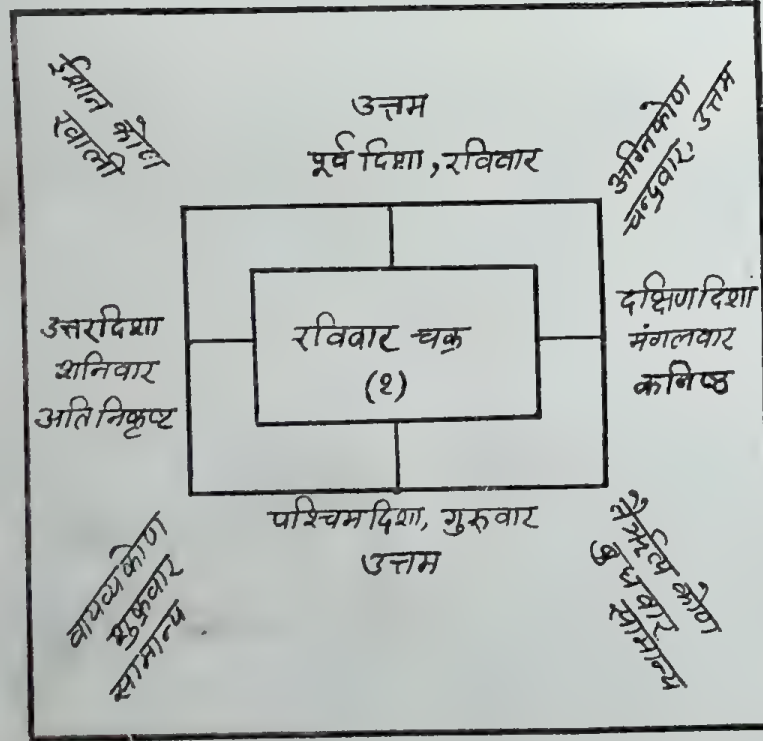 ईशान कोण
खाली
उत्तम
पूर्व दिशा, रविवार
अग्निकोण
चन्द्रवार, उत्तम
उत्तरदिशा
शनिवार
अति निकृष्ट
रविवार चक्र
(१)
दक्षिणदिशा
मंगलवार
कनिष्ठ
वायव्य कोण
शुक्रवार
सामान्य
पश्चिमदिशा, गुरुवार
उत्तम
नैर्ऋत्य कोण
बुधवार
सामान्य